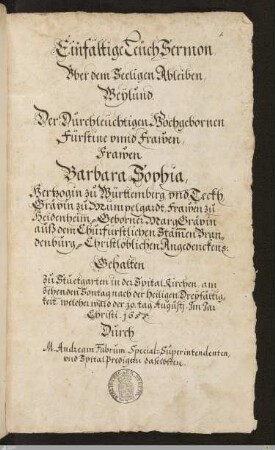 Einfältige Leüch Sermon
Vber dem Seeligen Ableiben,
Weylund
Der Dürchleüchtigen Hochgebornen
Fürstine vnnd Frawen,
Frawen
Barbara Sophia,
Hertzogin zu Württemberg vnd Teckh,
Grävin zu Mümpelgardt, Frawen zu
Heidenheim, Geborner MargGrävin
auß dem Chürfürstlichen Stammen Bran-
denbürg, Christloblichen Angedenckens.
Gehalten
Zu Stüetgarten in der Spital Kirchen, am
zehenden Sontag nach der Heiligen Dreyfältig-
keit welcher der 20 tag Augusti. Im Jar
Christi.
Dürch
M. Andream Fabrum, Special-Superintendenten,
vnd Spital Predigern daselbsten.